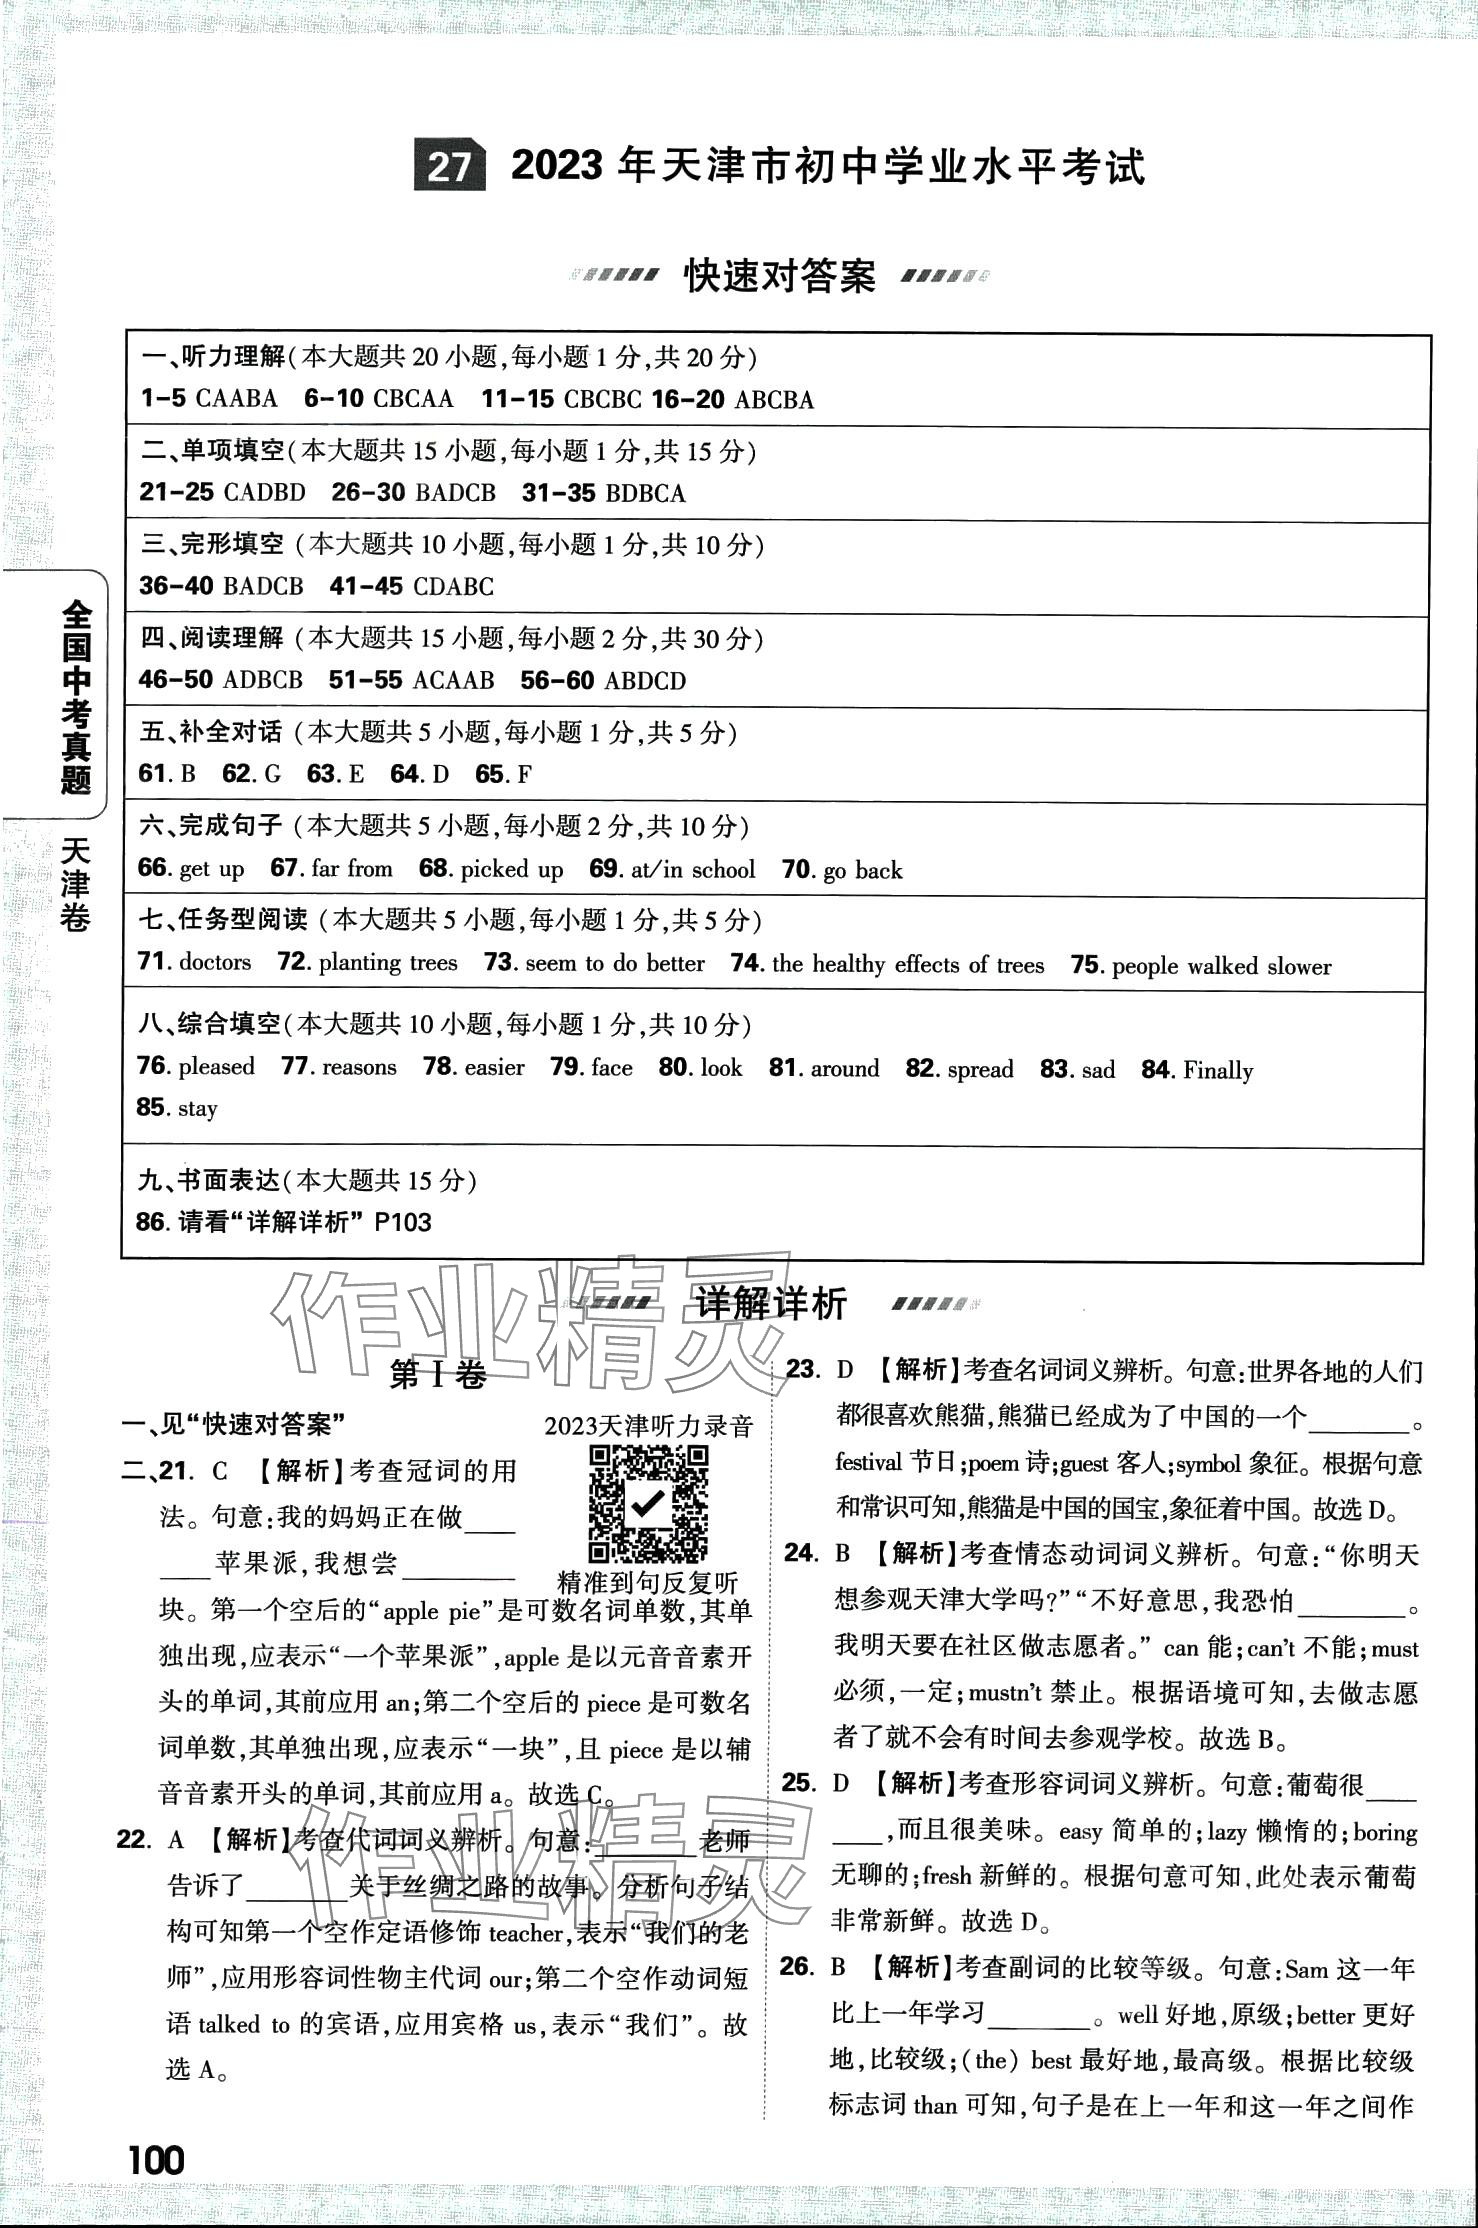 27 2023 年天津市初中学业水平考试
快速对答案
一、听力理解(本大题共 20 小题,每小题 1 分,共 20 分)
1-5 CAABA 6-10 CBCAA 11-15 CBCBC 16-20 ABCBA
二、单项填空(本大题共 15 小题,每小题 1 分,共 15 分)
21-25 CADBD 26-30 BADCB 31-35 BDBCA
三、完形填空 (本大题共 10 小题,每小题 1 分,共 10 分)
36-40 BADCB 41-45 CDABC
四、阅读理解 (本大题共 15 小题,每小题 2 分,共 30 分)
46-50 ADBCB 51-55 ACAAB 56-60 ABDCD
五、补全对话 (本大题共 5 小题,每小题 1 分,共 5 分)
61. B 62. G 63. E 64. D 65. F
六、完成句子 (本大题共 5 小题,每小题 2 分,共 10 分)
66. get up 67. far from 68. picked up 69. at/in school 70. go back
七、任务型阅读 (本大题共 5 小题,每小题 1 分,共 5 分)
71. doctors 72. planting trees 73. seem to do better 74. the healthy effects of trees 75. people walked slower
八、综合填空(本大题共 10 小题,每小题 1 分,共 10 分)
76. pleased 77. reasons 78. easier 79. face 80. look 81. around 82. spread 83. sad 84. Finally
85. stay
九、书面表达(本大题共 15 分)
86. 请看“详解详析” P103
全国中考真题
天津卷
详解详析
作业精灵
第 Ⅰ 卷
一、见“快速对答案”
2023天津听力录音
精准到句反复听
二、21. C 【解析】考查冠词的用
法。句意:我的妈妈正在做____
____苹果派,我想尝________
块。第一个空后的“apple pie”是可数名词单数,其单
独出现,应表示“一个苹果派”,apple 是以元音音素开
头的单词,其前应用 an;第二个空后的 piece 是可数名
词单数,其单独出现,应表示“一块”,且 piece 是以辅
音音素开头的单词,其前应用 a。故选 C。
22. A 【解析】考查代词词义辨析。句意:________老师
告诉了________关于丝绸之路的故事。分析句子结
构可知第一个空作定语修饰 teacher,表示“我们的老
师”,应用形容词性物主代词 our;第二个空作动词短
语 talked to 的宾语,应用宾格 us,表示“我们”。故
选 A。
作业精灵
23. D 【解析】考查名词词义辨析。句意:世界各地的人们
都很喜欢熊猫,熊猫已经成为了中国的一个________。
festival 节日;poem 诗;guest 客人;symbol 象征。根据句意
和常识可知,熊猫是中国的国宝,象征着中国。故选 D。
24. B 【解析】考查情态动词词义辨析。句意:“你明天
想参观天津大学吗?”“不好意思,我恐怕________。
我明天要在社区做志愿者。” can 能;can't 不能;must
必须,一定;mustn't 禁止。根据语境可知,去做志愿
者了就不会有时间去参观学校。故选 B。
25. D 【解析】考查形容词词义辨析。句意:葡萄很____
____,而且很美味。easy 简单的;lazy 懒惰的;boring
无聊的;fresh 新鲜的。根据句意可知,此处表示葡萄
非常新鲜。故选 D。
26. B 【解析】考查副词的比较等级。句意:Sam 这一年
比上一年学习________。well 好地,原级;better 更好
地,比较级;(the) best 最好地,最高级。根据比较级
标志词 than 可知,句子是在上一年和这一年之间作
100